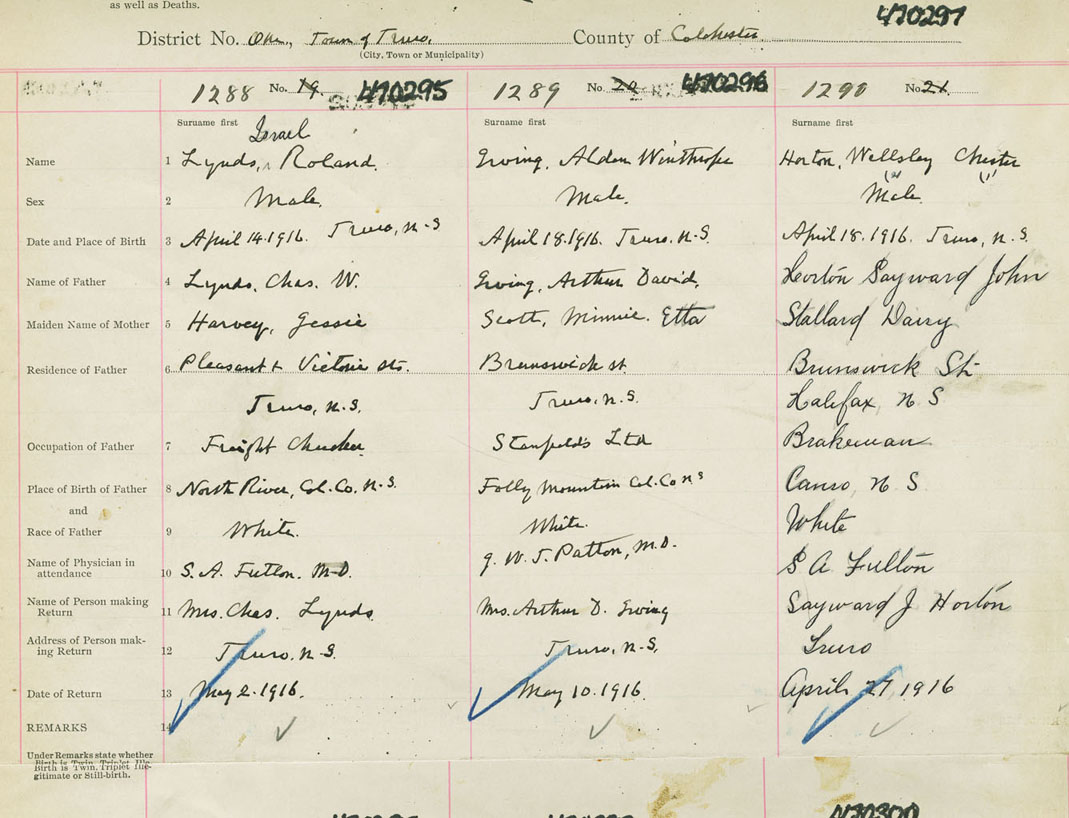 as well as Deaths.
470297
District No. One, Town of Truro, County of Colchester
(City, Town or Municipality)
1288 No. 19. 470295 1289 No. 20 470296 1290 No. 21.
Surname first Surname first Surname first
Israel
Name 1 Lynds, ^ Roland. Irving, Alden Winthrope Horton, Wellsley Chester
Sex 2 Male. Male. Male
Date and Place of Birth 3 April 14.1916. Truro, N-S April 18.1916. Truro. N.S. April 18.1916. Truro, N.S.
Name of Father 4 Lynds. Chas. W. Irving, Arthur David. Horton Sayward John
Maiden Name of Mother 5 Harvey, Jessie Scott, Minnie. Etta Stallard Daisy
Residence of Father 6 Pleasant & Victoria sts. Brunswick st Brunswick St.
Truro, N.S. Truro, N.S. Halifax, N S
Occupation of Father 7 Freight Checker Stanfield's Ltd Brakeman
Place of Birth of Father 8 North River, Col. Co. N.S. Folly Mountain Col. Co NS Canso, N S
and
Race of Father 9 White. White. White
Name of Physician in
attendance 10 S. A. Fulton. M-D. J. W. T. Patton, M.D. S A Fulton
Name of Person making
Return 11 Mrs. Chas. Lynds Mrs. Arthur D. Irving Sayward J Horton
Address of Person mak-
ing Return 12 Truro. N-S. Truro, N-S. Truro
Date of Return 13 May 2.1916. May 10.1916. April 27, 1916
REMARKS 14
Under Remarks state whether
Birth is Twin, Triplet Ille-
gitimate or Still-birth.
470300